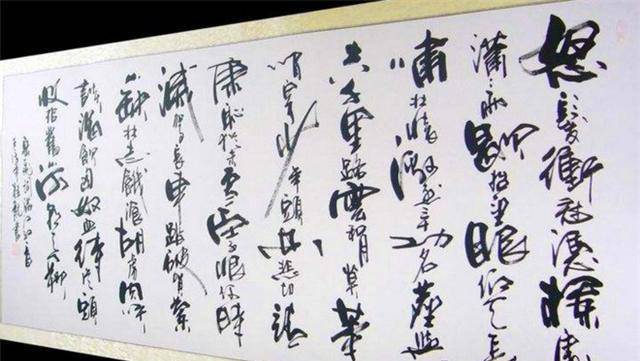 怒髮衝冠憑欄處
瀟瀟雨歇抬望眼仰天長
嘯壯懷激烈三十功名塵與
土八千里路雲和月莫等
閒白了少年頭空悲切靖
康恥猶未雪臣子恨何時
滅駕長車踏破賀蘭山
缺壯志飢餐胡虜肉笑
談渴飲匈奴血待從頭
收拾舊山河朝天闕
岳飛詞滿江紅